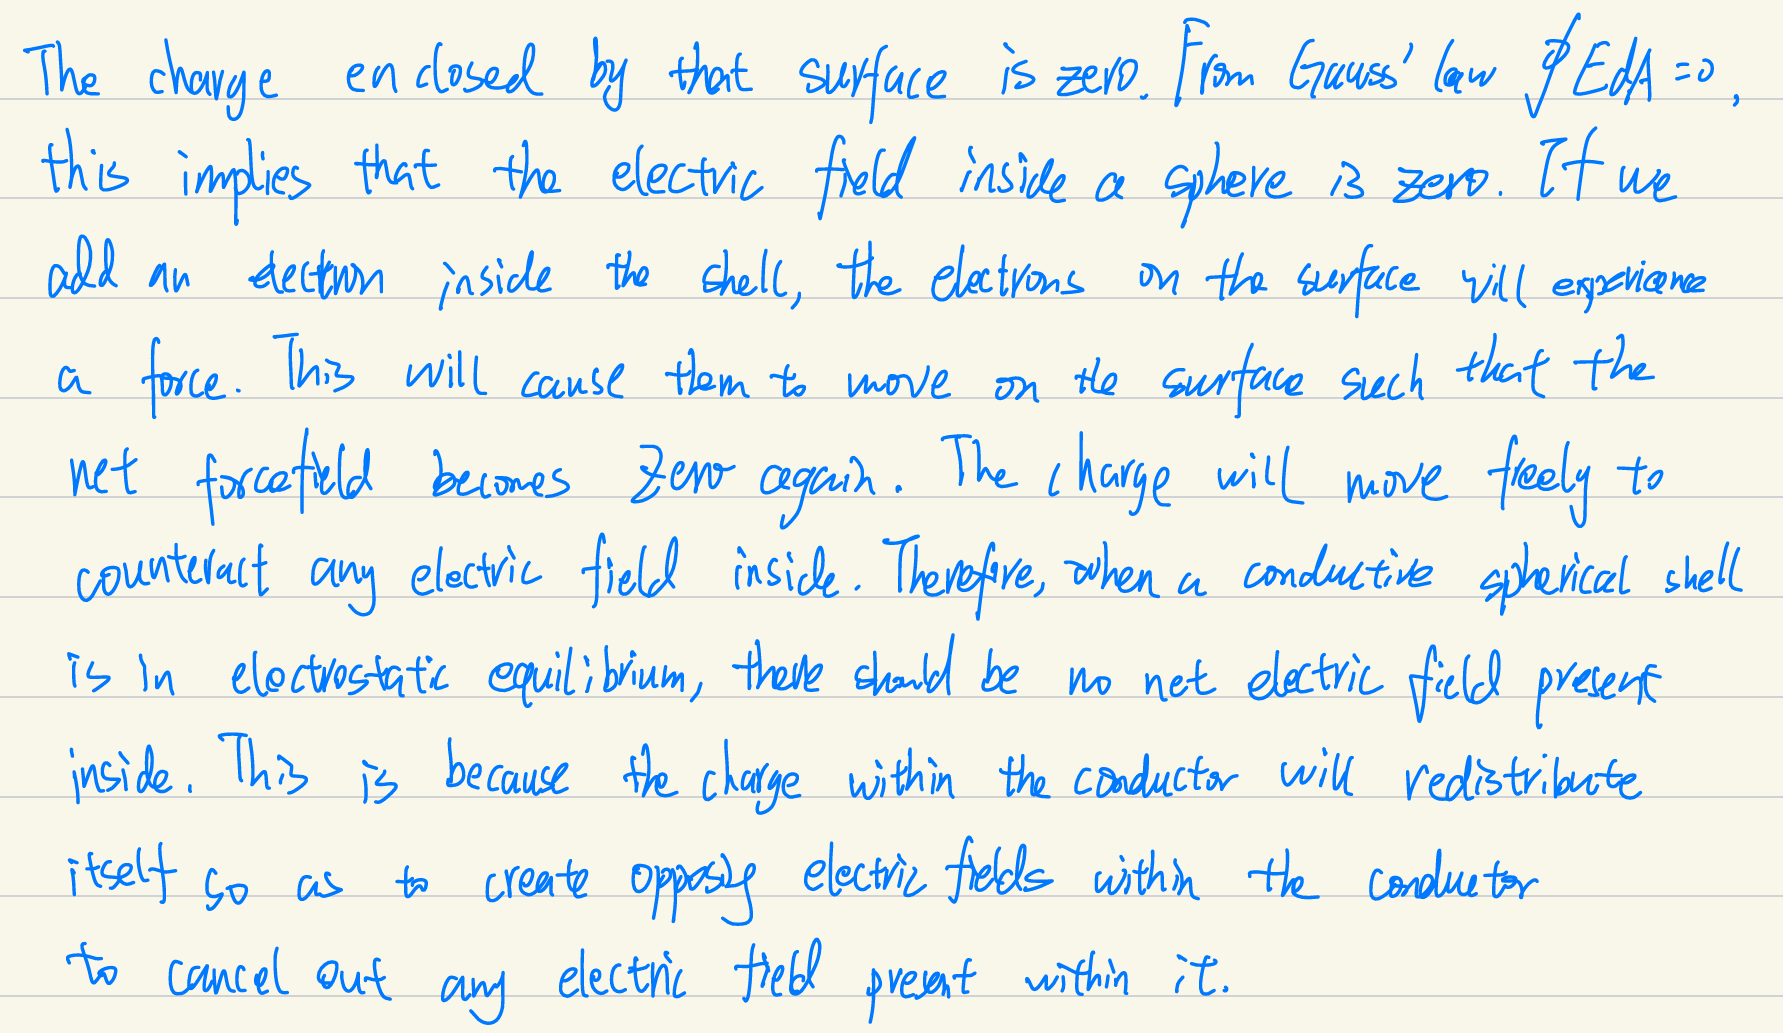 The charge enclosed by that surface is zero. From Gauss' law ∮EdA=0,
this implies that the electric field inside a sphere is zero. If we
add an electron inside the shell, the electrons on the surface will experience
a force. This will cause them to move on the surface such that the
net forcefield becomes zero again. The charge will move freely to
counteract any electric field inside. Therefore, when a conductive spherical shell
is in electrostatic equilibrium, there should be no net electric field present
inside. This is because the charge within the conductor will redistribute
itself so as to create opposing electric fields within the conductor
to cancel out any electric field present within it.